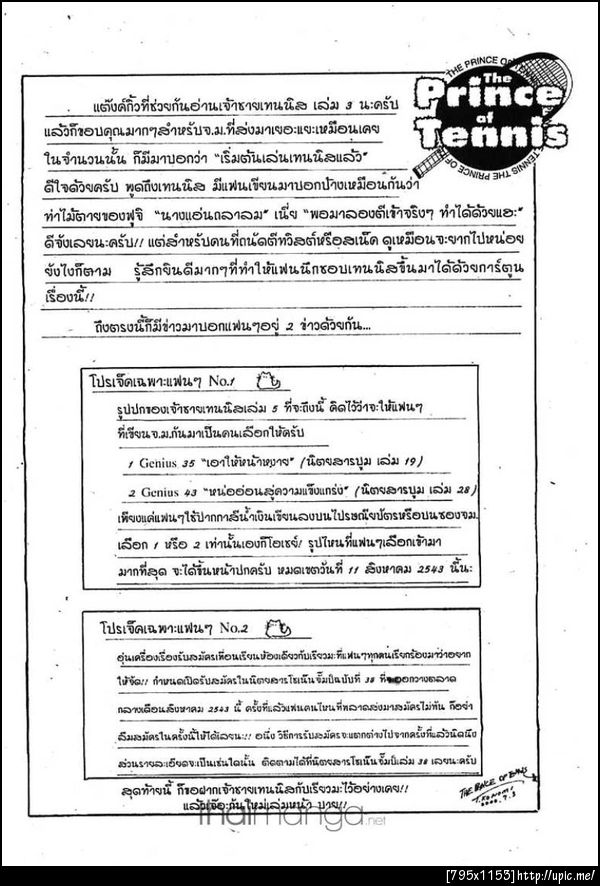 THE PRINCE OF TENNIS THE PRINCE OF
The
Prince
of
Tennis
แต๊งค์กิ้วที่ช่วยกันอ่านเจ้าชายเทนนิส เล่ม 3 นะครับ
แล้วก็ขอบคุณมากๆสำหรับจ.ม.ที่ส่งมาเยอะแยะเหมือนเคย
ในจำนวนนั้น ก็มีมาบอกว่า "เริ่มต้นเล่นเทนนิสแล้ว"
ดีใจด้วยครับ พูดถึงเทนนิส มีแฟนเขียนมาบอกบ้างเหมือนกันว่า
ท่าไม้ตายของฟูจิ "นางแอ่นถลาลม" เนี่ย "พอมาลองตีเข้าจริงๆ ทำได้ด้วยแฮะ"
ดีจังเลยนะครับ!! แต่สำหรับคนที่ถนัดตีทวิสต์หรือสเน็ค ดูเหมือนจะยากไปหน่อย
ยังไงก็ตาม รู้สึกยินดีมากๆที่ทำให้แฟนนึกชอบเทนนิสขึ้นมาได้ด้วยการ์ตูน
เรื่องนี้!!
ถึงตรงนี้ก็มีข่าวมาบอกแฟนๆอยู่ 2 ข่าวด้วยกัน...
โปรเจ็คเฉพาะแฟนๆ No.1
รูปปกของเจ้าชายเทนนิสเล่ม 5 ที่จะถึงนี้ คิดไว้ว่าจะให้แฟนๆ
ที่เขียนจ.ม.กันมาเป็นคนเลือกให้ครับ
1 Genius 35 "เอาให้หน้าหงาย" (นิตยสารบูม เล่ม 19)
2 Genius 43 "หน่ออ่อนสู่ความแข็งแกร่ง" (นิตยสารบูม เล่ม 28)
เพียงแค่แฟนๆใช้ปากกาสีน้ำเงินเขียนลงบนไปรษณียบัตรหรือบนซองจม.
เลือก 1 หรือ 2 เท่านั้นเองก็โอเชย์! รูปไหนที่แฟนๆเลือกเข้ามา
มากที่สุด จะได้ขึ้นหน้าปกครับ หมดเขตวันที่ 11 สิงหาคม 2543 นี้นะ
โปรเจ็คเฉพาะแฟนๆ No.2
อุ่นเครื่องเรื่องรับสมัครเพื่อนเรียนห้องเดียวกับเรียวมะที่แฟนๆทุกคนเรียกร้องมาว่าอยาก
ให้จัด!! กำหนดเปิดรับสมัครในนิตยสารโชเน็นจั๊มป์ฉบับที่ 38 ที่ออกวางตลาด
กลางเดือนสิงหาคม 2543 นี้ ครั้งที่แล้วแฟนคนไหนที่พลาดส่งมาสมัครไม่ทัน ก็อย่า
ลืมสมัครในครั้งนี้ให้ได้เลยนะ!! อนึ่ง วิธีการรับสมัครจะแตกต่างไปจากครั้งที่แล้วนิดนึง
ส่วนรายละเอียดจะเป็นเช่นใดนั้น ติดตามได้ที่นิตยสารโชเน็น จั๊มป์เล่ม 38 เลยนะครับ
สุดท้ายนี้ ก็ขอฝากเจ้าชายเทนนิสกับเรียวมะไว้อย่างเคย!!
แล้วเจอะกันใหม่เล่มหน้า บาย!!
THE PRINCE OF TENNIS
T.KONOMI
2000.7.3
thaimanga.net
[795x1153]http://upic.me/